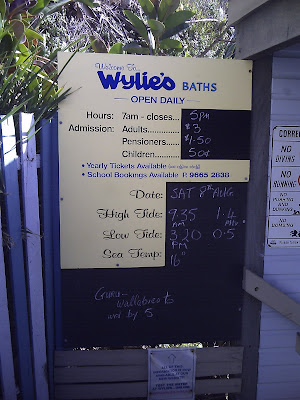 Welcome To...
Wylie's BATHS
OPEN DAILY
Hours: 7am - closes... 5pm
Admission: Adults............ $3
Pensioners...... $1.50
Children.......... 50¢
• Yearly Tickets Available
• School Bookings Available P. 9665 2838
Date: SAT 8th AUG
High Tide: 9.35 AM 1.4
Low Tide: 3.20 PM 0.5
Sea Temp: 16°
Guru -
Wallabies to
win by 5
NO
DIVING
NO
RUNNING
NO
PUSHING
AND